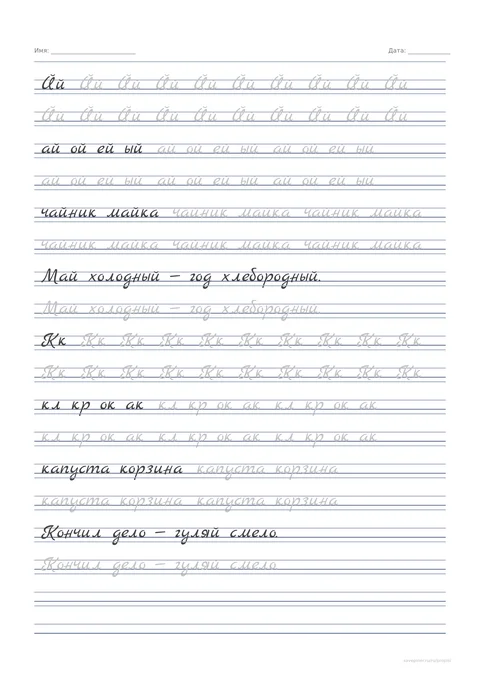 Имя: Дата:
Йй Йй Йй Йй Йй Йй Йй Йй Йй Йй
Йй Йй Йй Йй Йй Йй Йй Йй Йй Йй
ай ой ей ый ай ой ей ый ай ой ей ый
ай ой ей ый ай ой ей ый ай ой ей ый
чайник майка чайник майка чайник майка
чайник майка чайник майка чайник майка
Май холодный – год хлебородный.
Май холодный – год хлебородный
Кк Кк Кк Кк Кк Кк Кк Кк Кк Кк
Кк Кк Кк Кк Кк Кк Кк Кк Кк Кк
кл кр ок ак кл кр ок ак кл кр ок ак
кл кр ок ак кл кр ок ак кл кр ок ак
капуста корзина капуста корзина
капуста корзина капуста корзина
Кончил дело – гуляй смело.
Кончил дело – гуляй смело